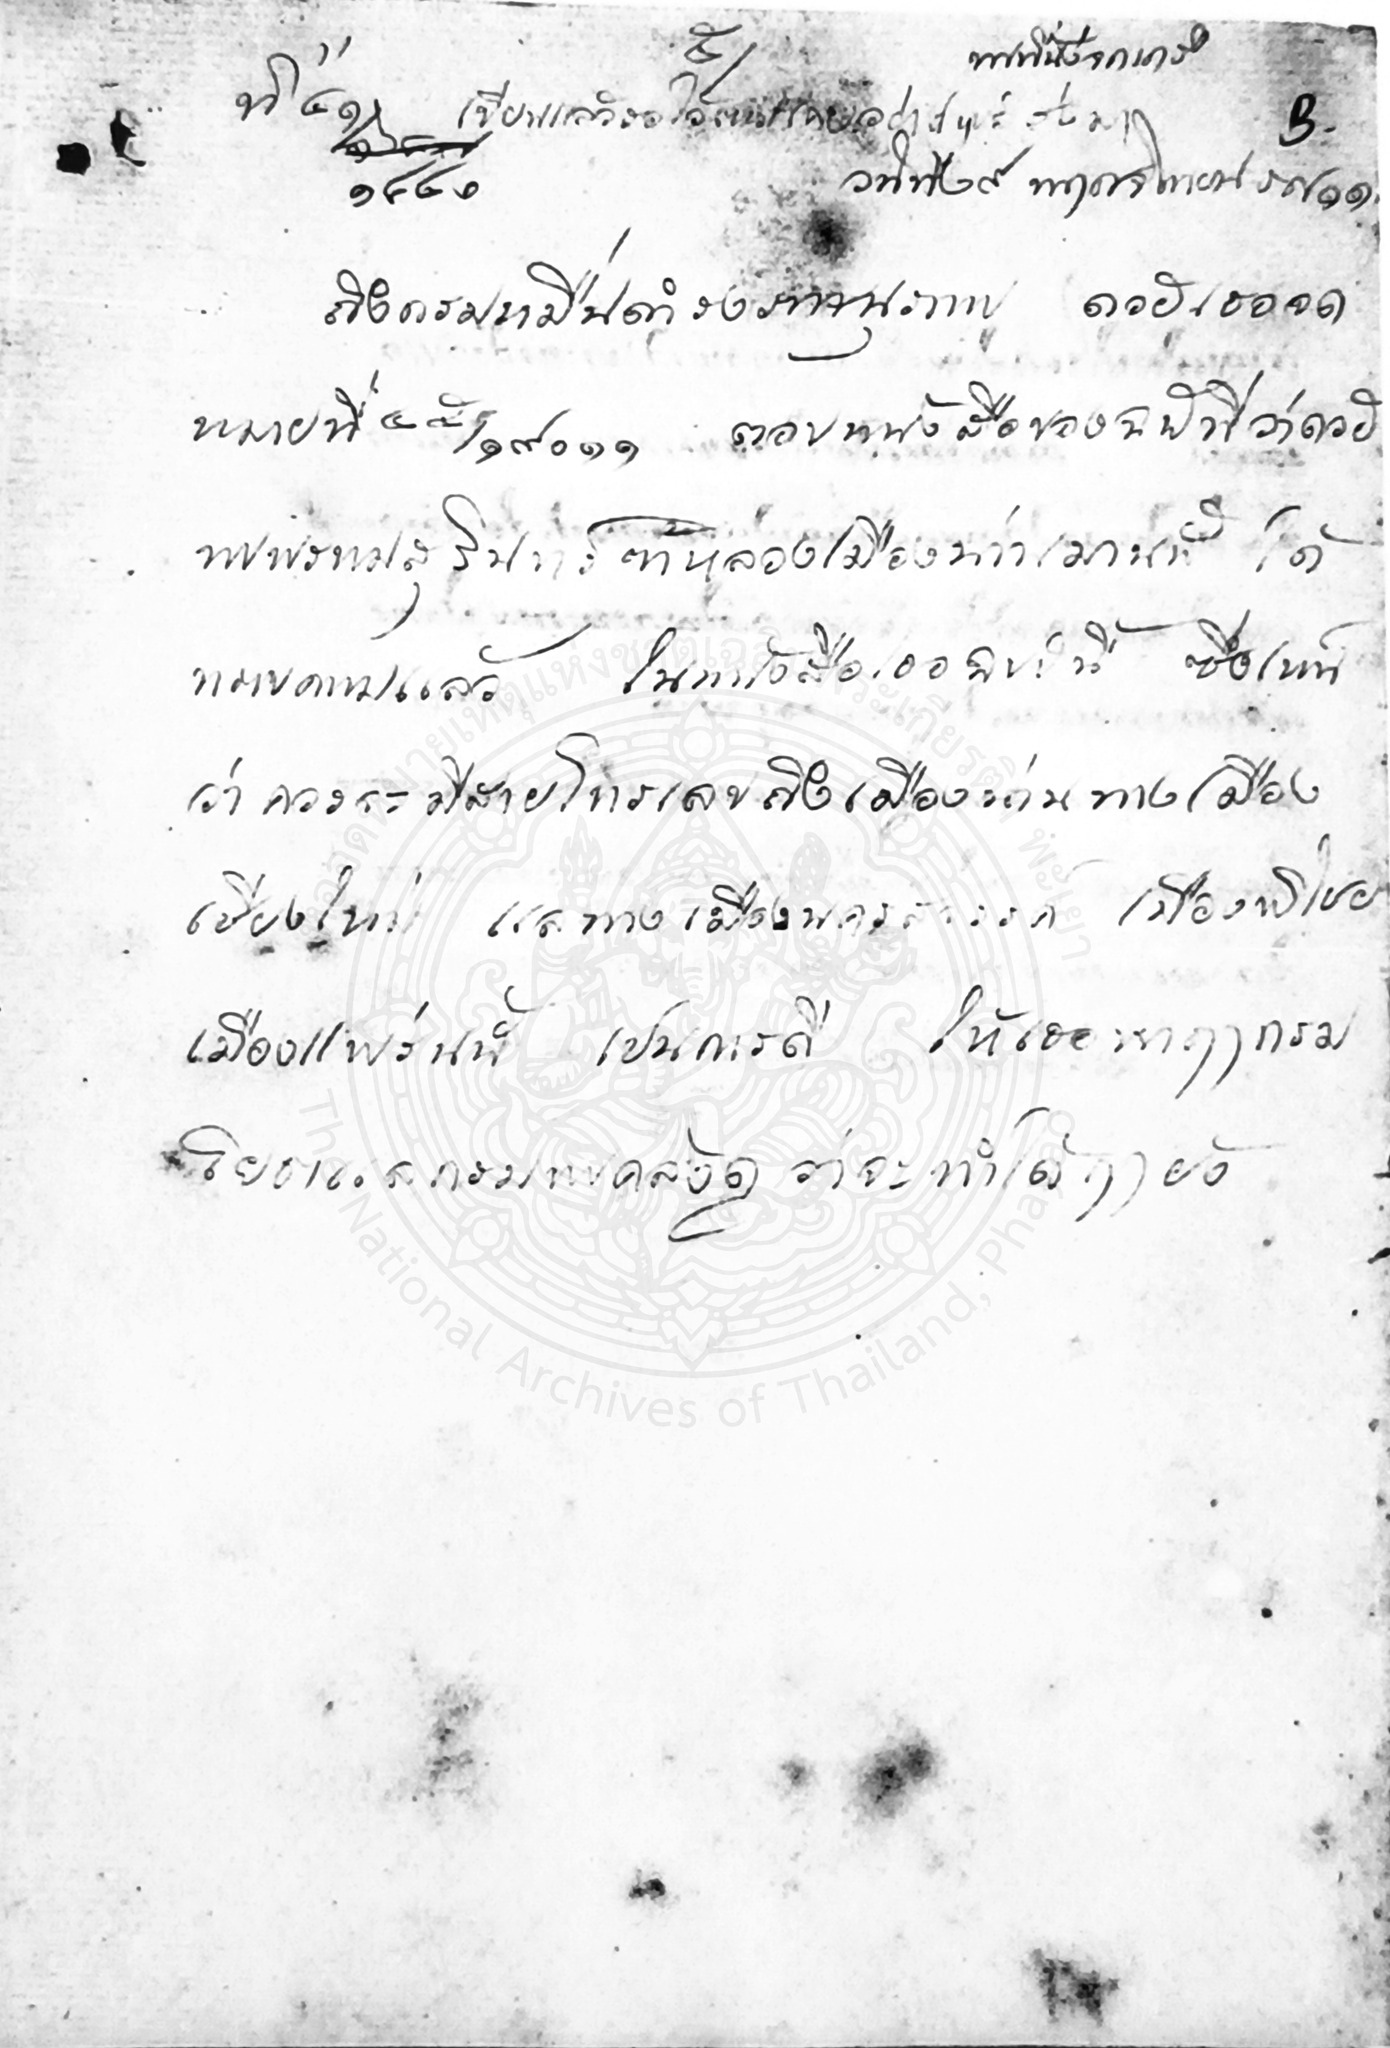 ที่ ๔๑
พระที่นั่งจักรกรี
3.
๑๔๔๑
วันที่ ๒๙ พฤศจิกายน รศ ๑๑
ถึงกรมหมื่นดำรงราชานุภาพ ด้วยเธอจด
หมายที่ ๔๕/๑๙๐๑๑ ตอบหนังสือของฉันที่ว่าด้วย
หลวงเมืองน่านั้น ได้
ทราบความแล้ว ในหนังสือเธอฉบับนี้ ซึ่งเหน
ว่าควรจะมีสายโทรเลขถึงเมืองน่านทางเมือง
เชียงใหม่ แลทางเมืองนครสวรรค์ เมืองพิไชย
เมืองแพร่นั้น เปนการดี ให้เธอหาฤๅกรม
โยธาแลกรมพระคลังดู ว่าจะทำได้ฤๅยัง
หอจดหมายเหตุแห่งชาติเฉลิมพระเกียรติ พะเยา
The National Archives of Thailand, Phayao